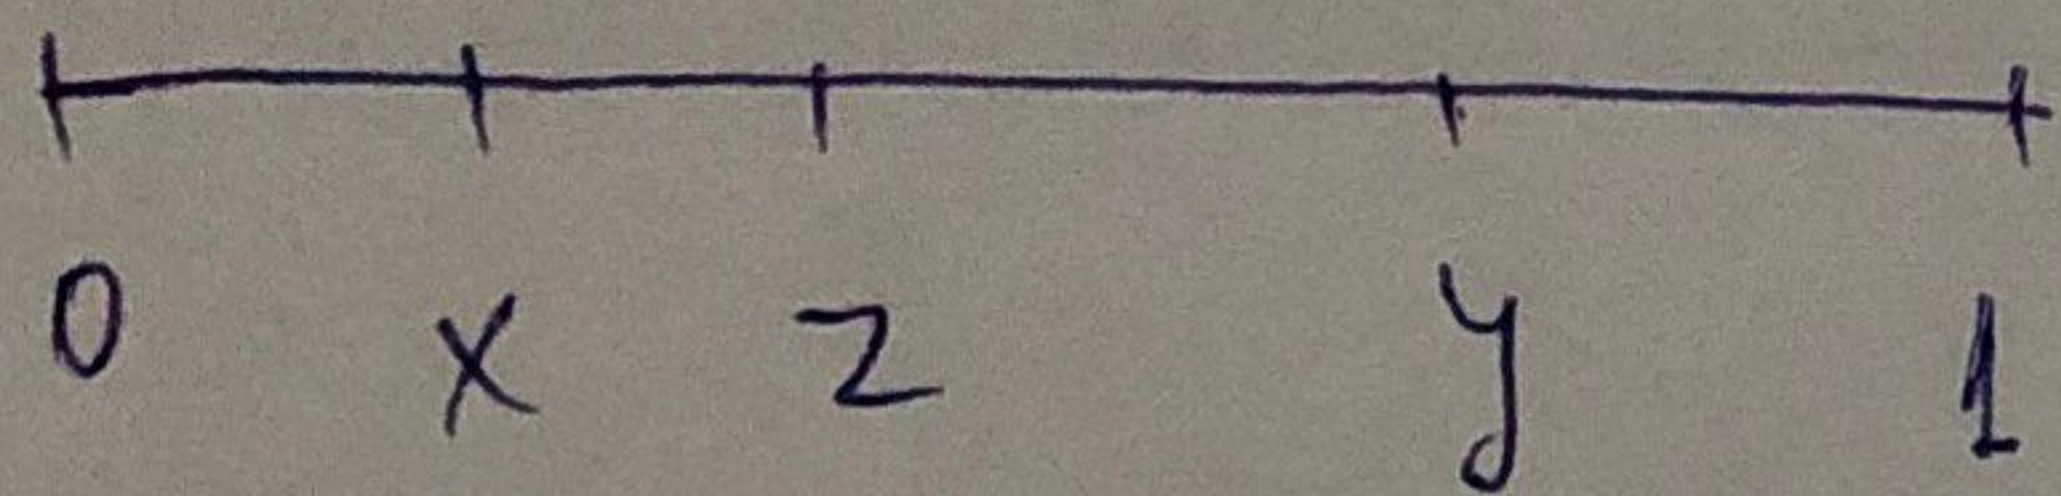 0 x z y 1